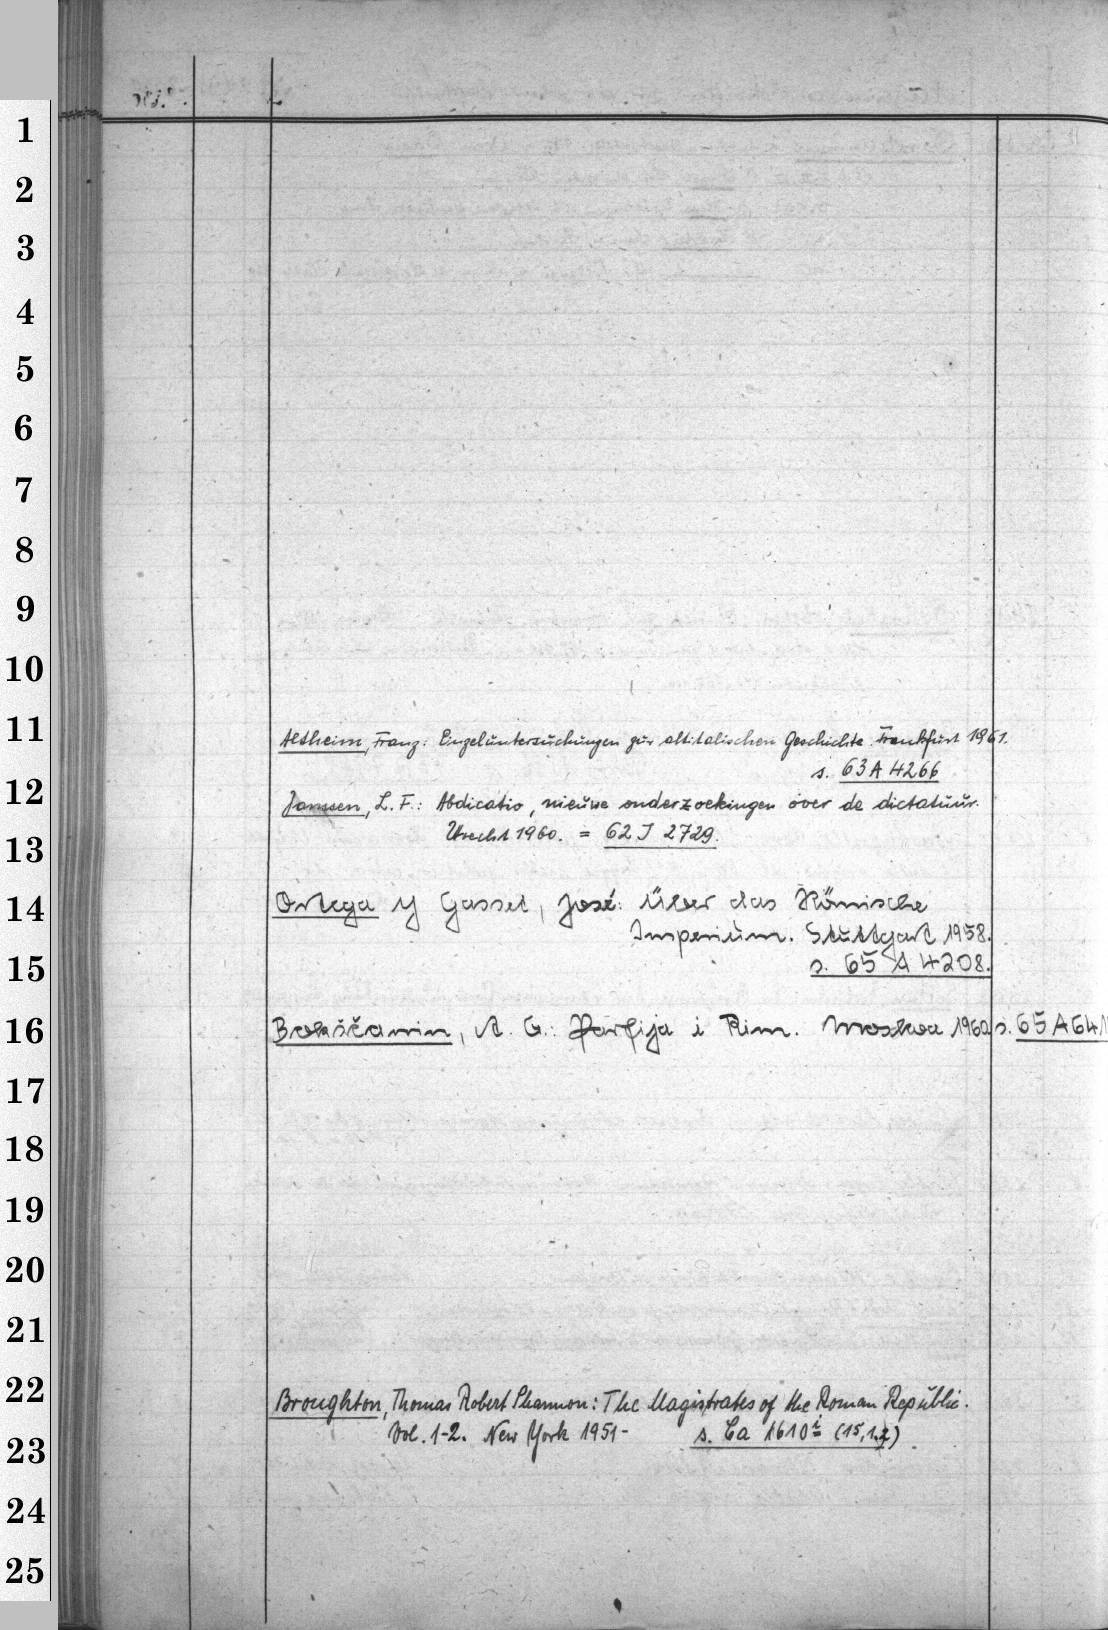 1
2
3
4
5
6
7
8
9
10
11
12
13
14
15
16
17
18
19
20
21
22
23
24
25
Altheim, Franz: Einzeluntersuchungen zur altitalischen Geschichte. Frankfurt 1961.
s. 63 A 4266
Janssen, L. F.: Abdicatio, nieuwe onderzoekingen over de dictatuur.
Utrecht 1960. = 62 J 2729.
Ortega y Gasset, José: Über das Römische
Imperium. Stuttgart 1958.
s. 65 A 4208.
Bokščanin, A. G.: Parfija i Rim. Moskva 1960 s. 65 A 641
Broughton, Thomas Robert Shannon: The Magistrates of the Roman Republic.
Vol. 1-2. New York 1951- s. Ca 1610 i (15,1.2)